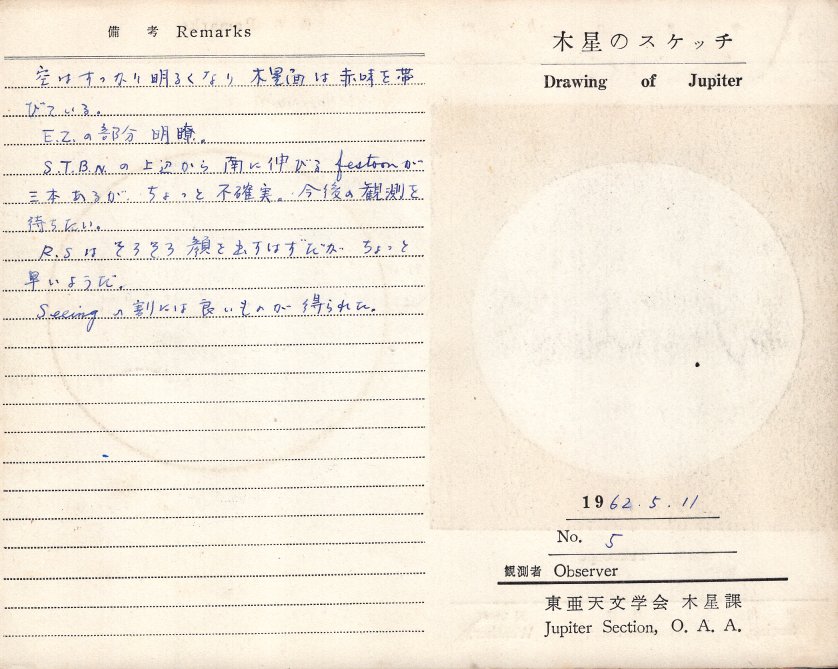 備 考 Remarks
空はすっかり明るくなり 木星面は赤味を帯
びている。
E.Z.の部分 明瞭。
S.T.B.n.の上辺から南に伸びる festoonが
三本あるが ちょっと不確実。今後の観測を
待ちたい。
R.Sはそろそろ顔を出すはずだが ちょっと
早いようだ。
Seeingの割には良いものが得られた。
木星のスケッチ
Drawing of Jupiter
1962.5.11
No. 5
観測者 Observer
東亜天文学会 木星課
Jupiter Section, O. A. A.